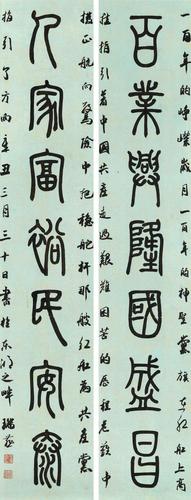 百年的峥嵘歲月一百年的神聖黨旗在紅船上高
百業興隆國盛昌
挂指引着中國共產黨走過艱難困苦的歷程危難中
正航向驚險中把穩舵杆那艘紅船為共產黨
人家富裕民安泰
指引了方向辛丑三月三十日書於東湖之畔